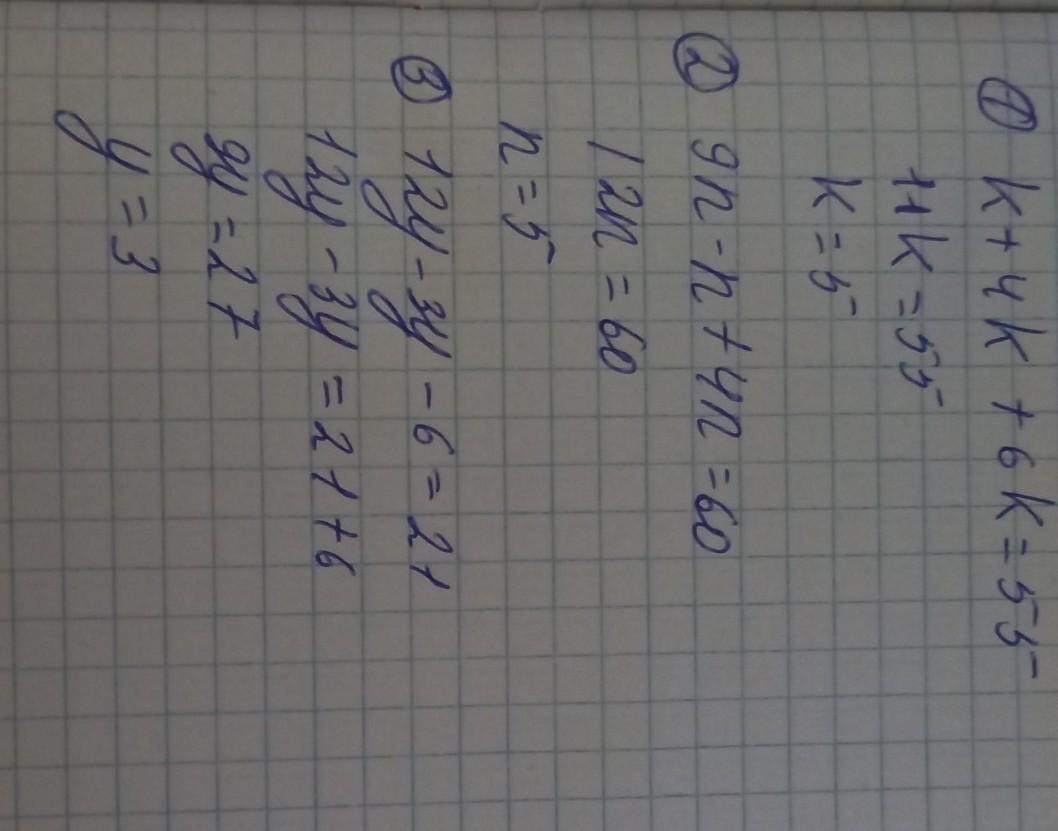 ① k+4k+6k=55
11k=55
k=5
② 9n-n+4n=60
12n=60
n=5
③ 12y-3y-6=21
12y-3y=21+6
9y=27
y=3